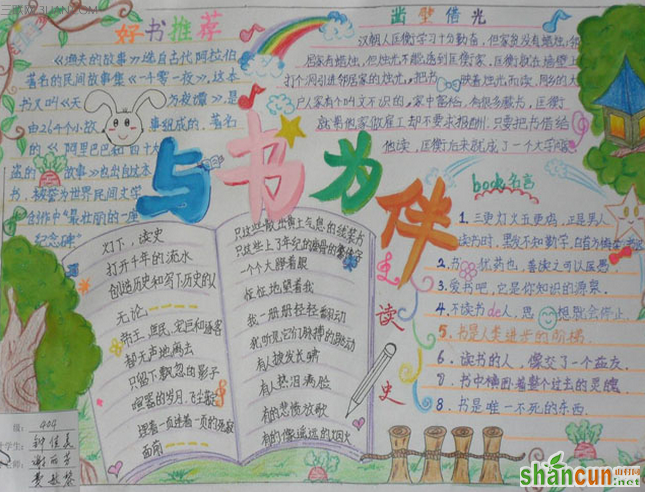 好书推荐
《渔夫的故事》选自古代阿拉伯
著名的民间故事集《一千零一夜》,这本
书又叫《天方夜谭》,是
由264个小故事组成的,著名
的《阿里巴巴和四十大
盗的故事》也出自这本
书,被誉为世界民间文学
创作中"最壮丽的一座
纪念碑"
凿壁借光
汉朝人匡衡学习十分勤奋,但家贫没有蜡烛,邻
居家有蜡烛,但烛光不能透到匡衡家,匡衡就在墙壁上
打个洞引进邻居家的烛光,把书映着烛光而读,同乡的大
户人家有个叫文不识的,家中富裕,有很多藏书,匡衡
就帮他家做雇工却不要求报酬.只要把书借给
他读,匡衡后来就成了一个大学
与书为伴
book名言
1.三更灯火五更鸡,正是男儿
读书时,黑发不知勤学,白首方悔
2.书犹药也,善读之可以医愚.
3.爱书吧,它是你知识的源泉.
4.不读书de人,思想就会停止.
5.书是人类进步的阶梯.
6.读书的人,像交了一个益友.
8.书中横卧着整个过去的灵魂
8.书是唯一不死的东西.
读史
灯下,读史
打开千年的流水
创造历史和写下历史的人
无论
帝王、庶民、宠臣和
都无声地离去
只留下飘忽的影子
喧嚣的岁月,
一页连着一页的
一个个大睁着眼
怔怔地望着我
我一册册轻轻翻动
我听见它们脉搏的跳动
有人披发长啸
有人热泪满脸
有的悲愤放歌
有的像遥远的烟火
404
shancun
.net